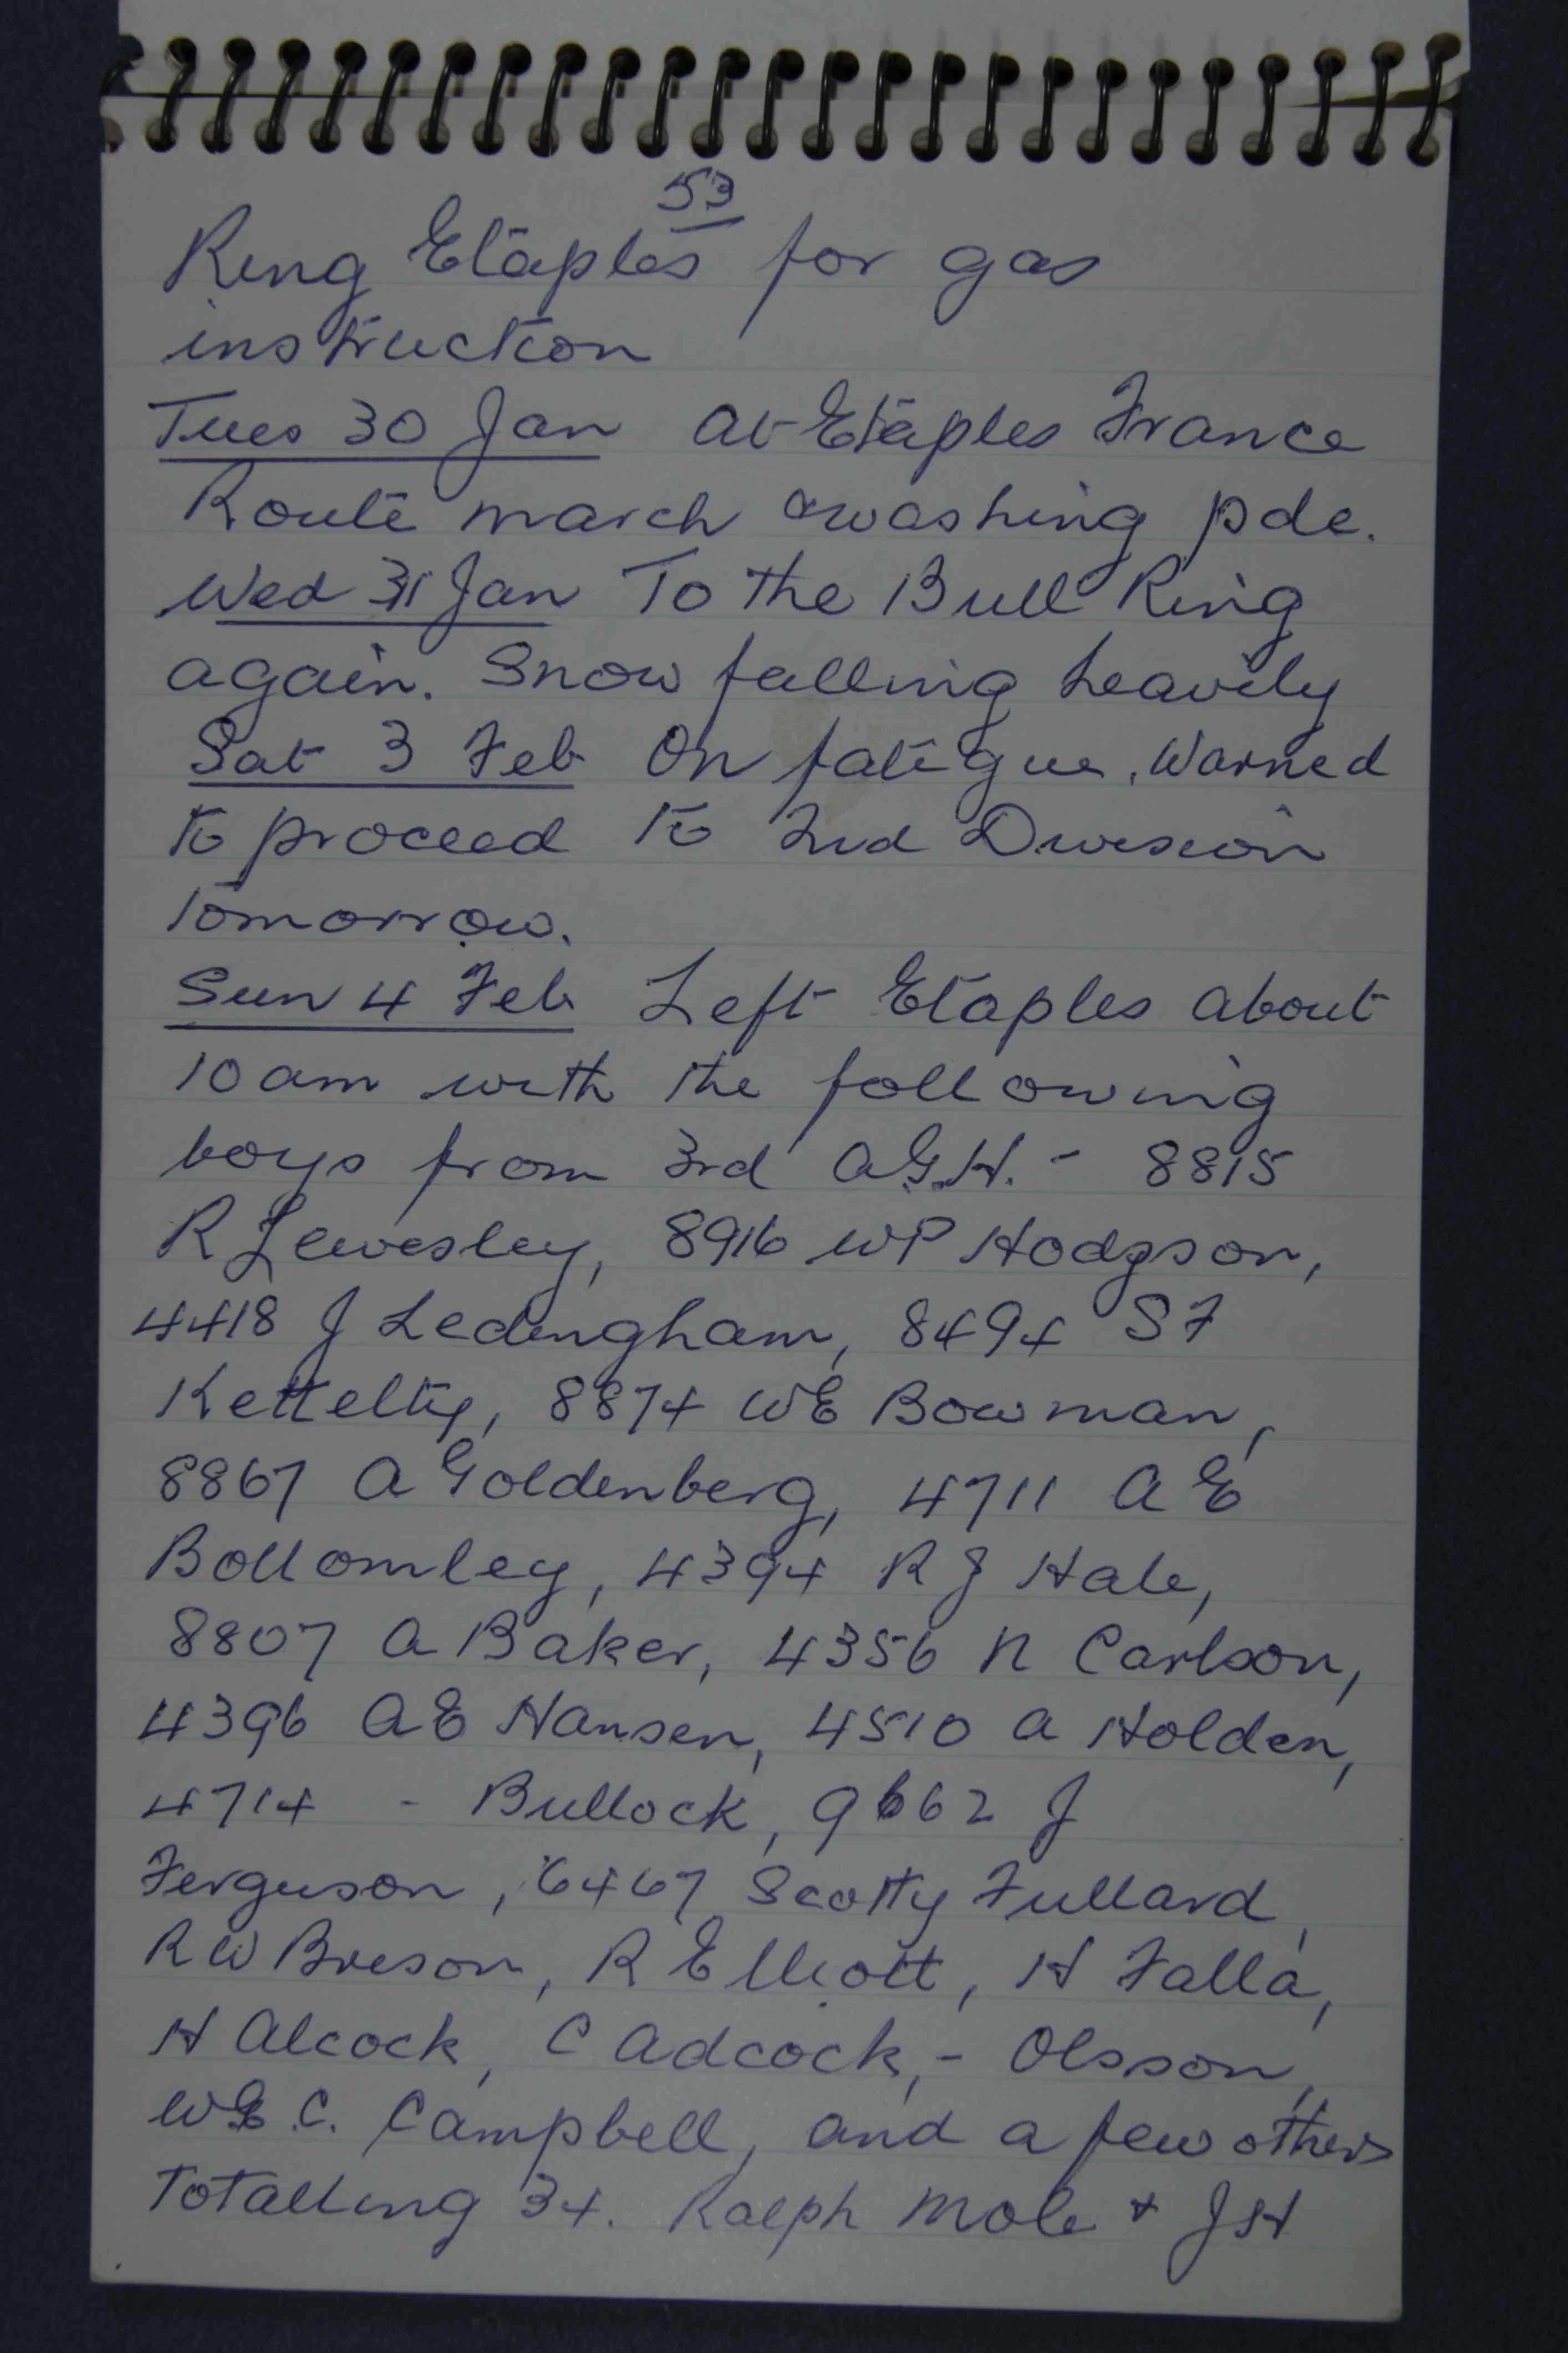 53
Ring Etaples for gas
instruction
Tues 30 Jan At Etaples France
Route march & washing pde.
Wed 31 Jan To the Bull Ring
again. Snow falling heavily
Sat 3 Feb On fatigue. Warned
to proceed to 2nd Division
tomorrow.
Sun 4 Feb Left Etaples about
10 am with the following
boys from 3rd A.G.H. - 8815
R Lewesley, 8916 WP Hodgson,
4418 J Ledingham, 8494 SF
Kettelty, 8874 WE Bowman,
8867 A Goldenberg, 4711 AE
Bottomley, 4394 R J Hale,
8807 A Baker, 4356 N Carlson,
4396 AE Hansen, 4510 A Holden,
4714 - Bullock, 9662 J
Ferguson, 6467 Scotty Fullard,
RW Breson, R Elliott, H Falla,
H Alcock, C Adcock, - Olsson,
C. Campbell, and a few others
Totalling 34. Ralph Mole & JH